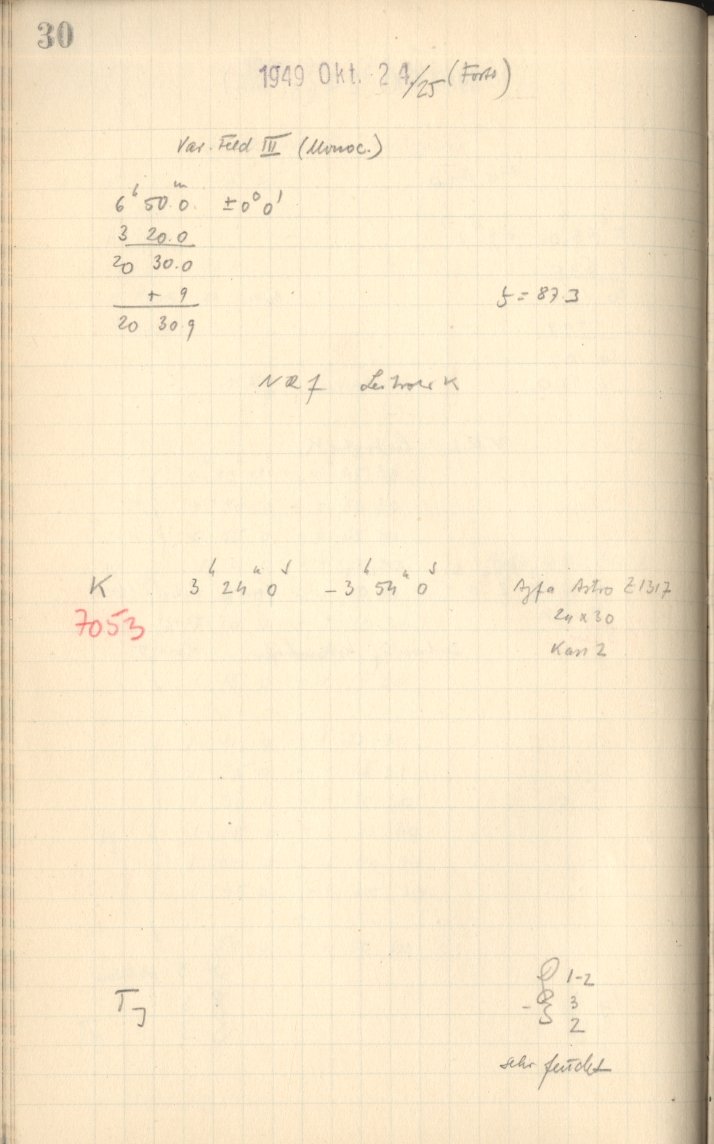 30
1949 Okt. 24/25 (Forts)
Var. Feld III (Monoc.)
6ʰ 50ᵐ.0 ±0°0'
3 20.0
20 30.0
+ 9
20 30.9
ζ = 87.3
Leitrohr K
K 3ʰ 24ᵐ 0ˢ – 3ʰ 54ᵐ 0ˢ Agfa Astro Z1317
7053 24 x 30
Kass 2
1-2
3
2
sehr feucht